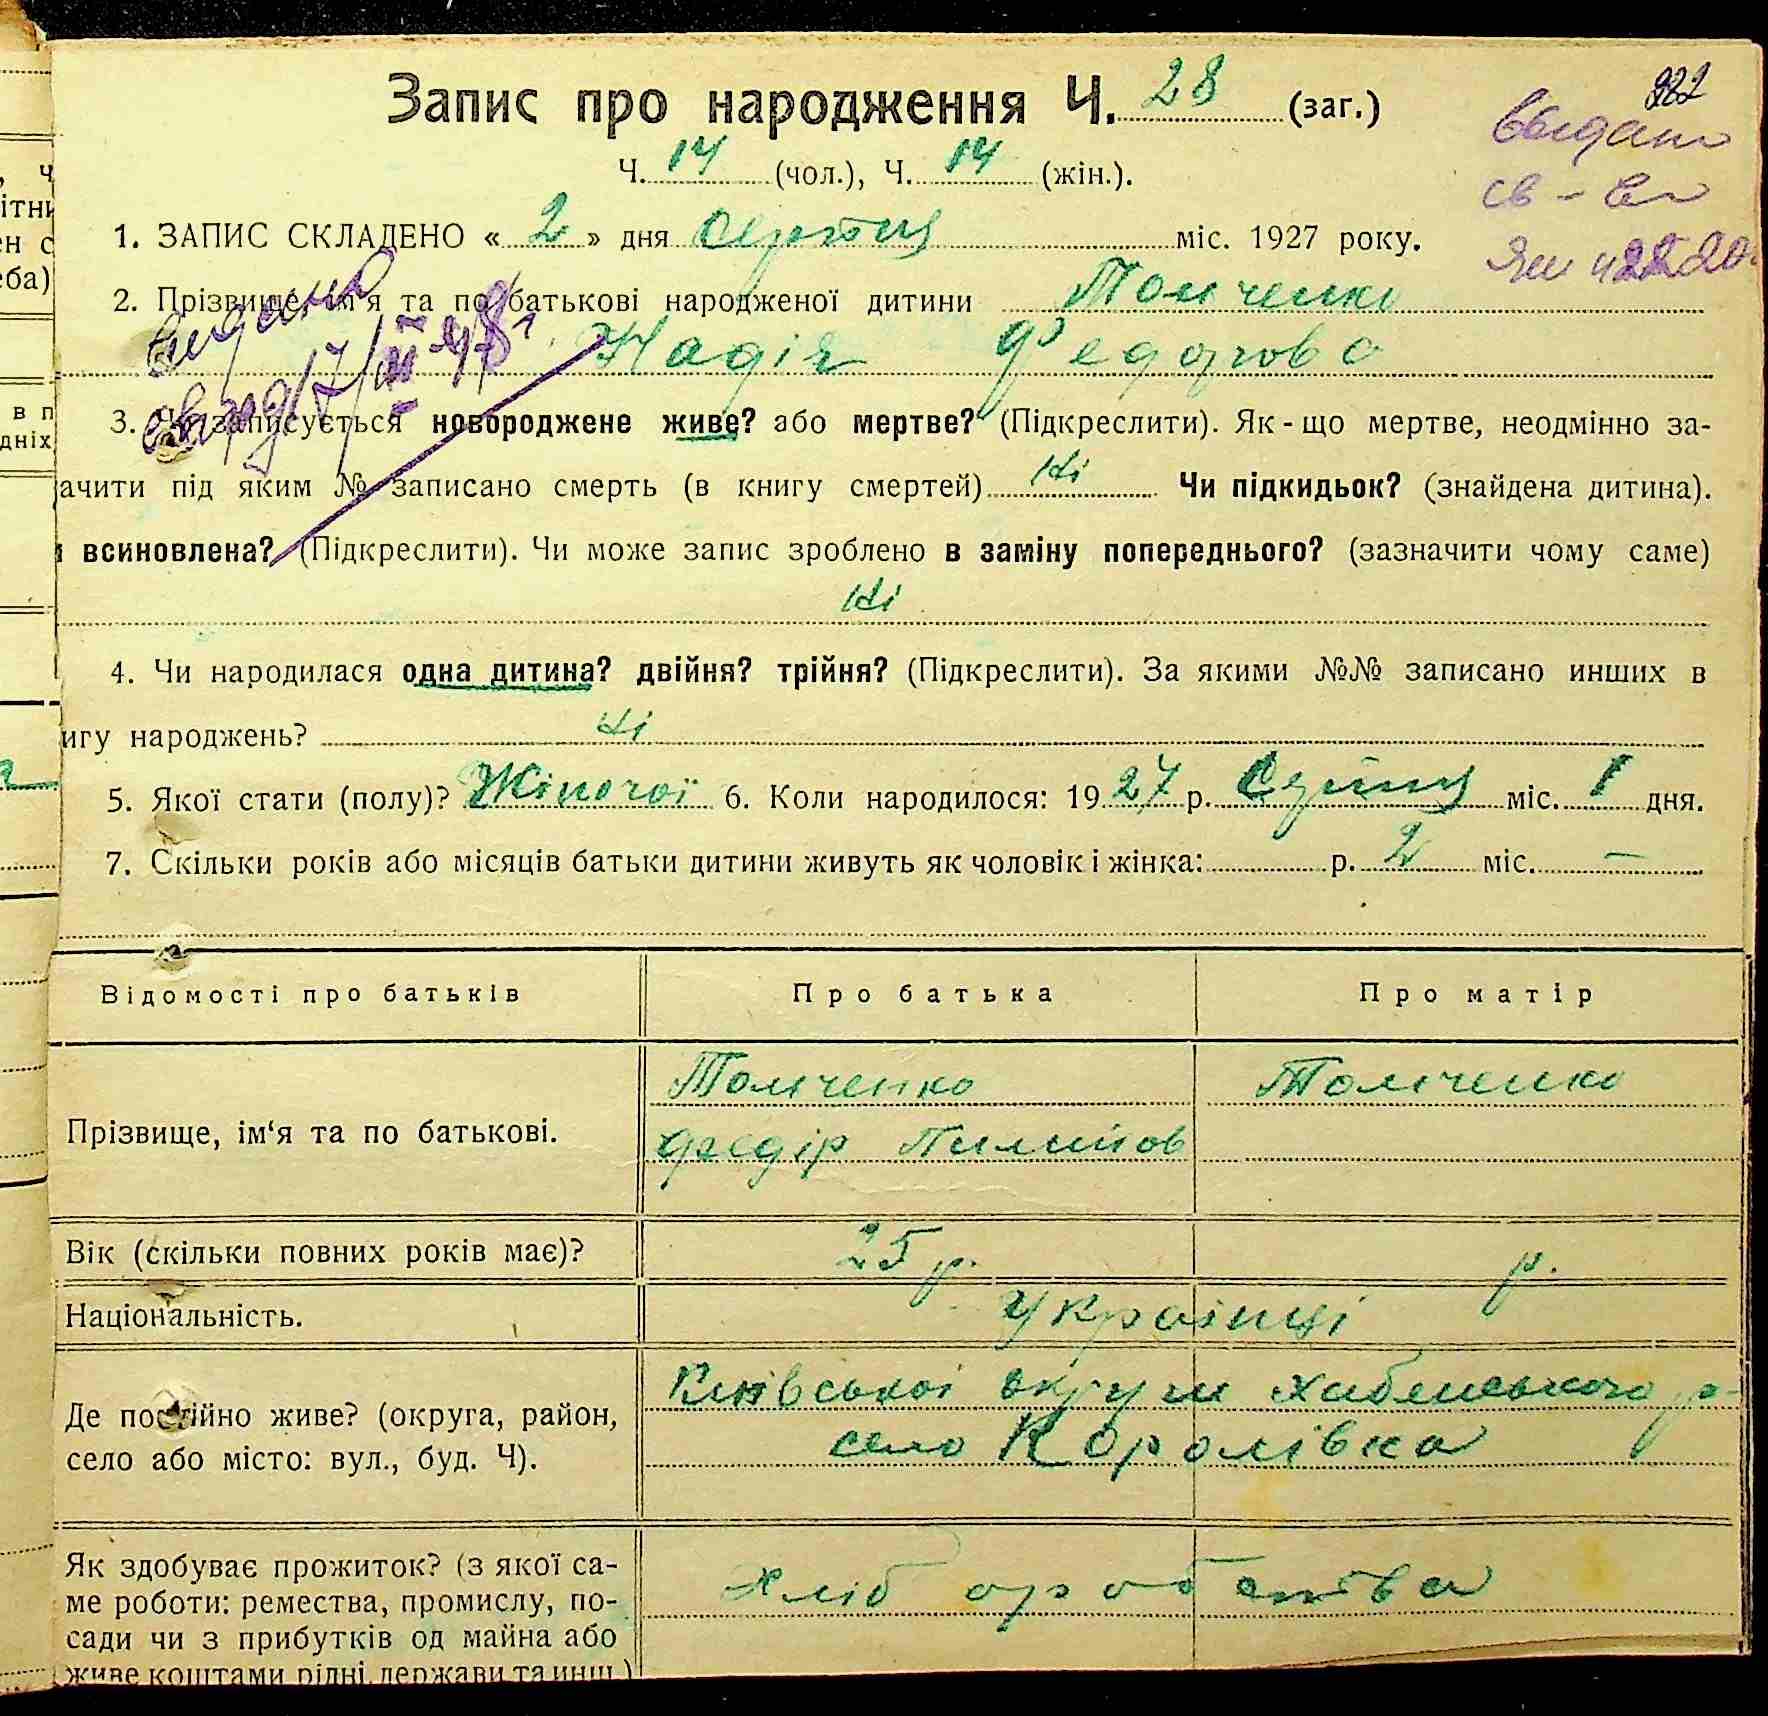 322
Запис про народження Ч. 28 (заг.)
Выдано
Ч. 14 (чол.), Ч. 14 (жін.).
св-во
1. ЗАПИС СКЛАДЕНО « 2 » дня Серпня міс. 1927 року.
2. Прізвище, ім'я та по батькові народженої дитини Томченко
видано
Надія Федорова
3. Чи записується новороджене живе? або мертве? (Підкреслити). Як-що мертве, неодмінно за-
ачити під яким № записано смерть (в книгу смертей) Ні Чи підкидьок? (знайдена дитина).
и всиновлена? (Підкреслити). Чи може запис зроблено в заміну попереднього? (зазначити чому саме)
Ні
4. Чи народилася одна дитина? двійня? трійня? (Підкреслити). За якими №№ записано инших в
игу народжень? Ні
5. Якої стати (полу)? Жіночої 6. Коли народилося: 1927 р. Серпня міс. 1 дня.
7. Скільки років або місяців батьки дитини живуть як чоловік і жінка: р. 2 міс. —
Відомості про батьків Про батька Про матір
Прізвище, ім'я та по батькові. Томченко Томченко
Федір Пилипов
Вік (скільки повних років має)? 25 р. р.
Національність. Українці
Де постійно живе? (округа, район, Київської округи Хабенського р-
село або місто: вул., буд. Ч). село Королівка
Як здобуває прожиток? (з якої са- Хліборобства
ме роботи: ремества, промислу, по-
сади чи з прибутків од майна або
живе коштами рідні, держави та инш.)